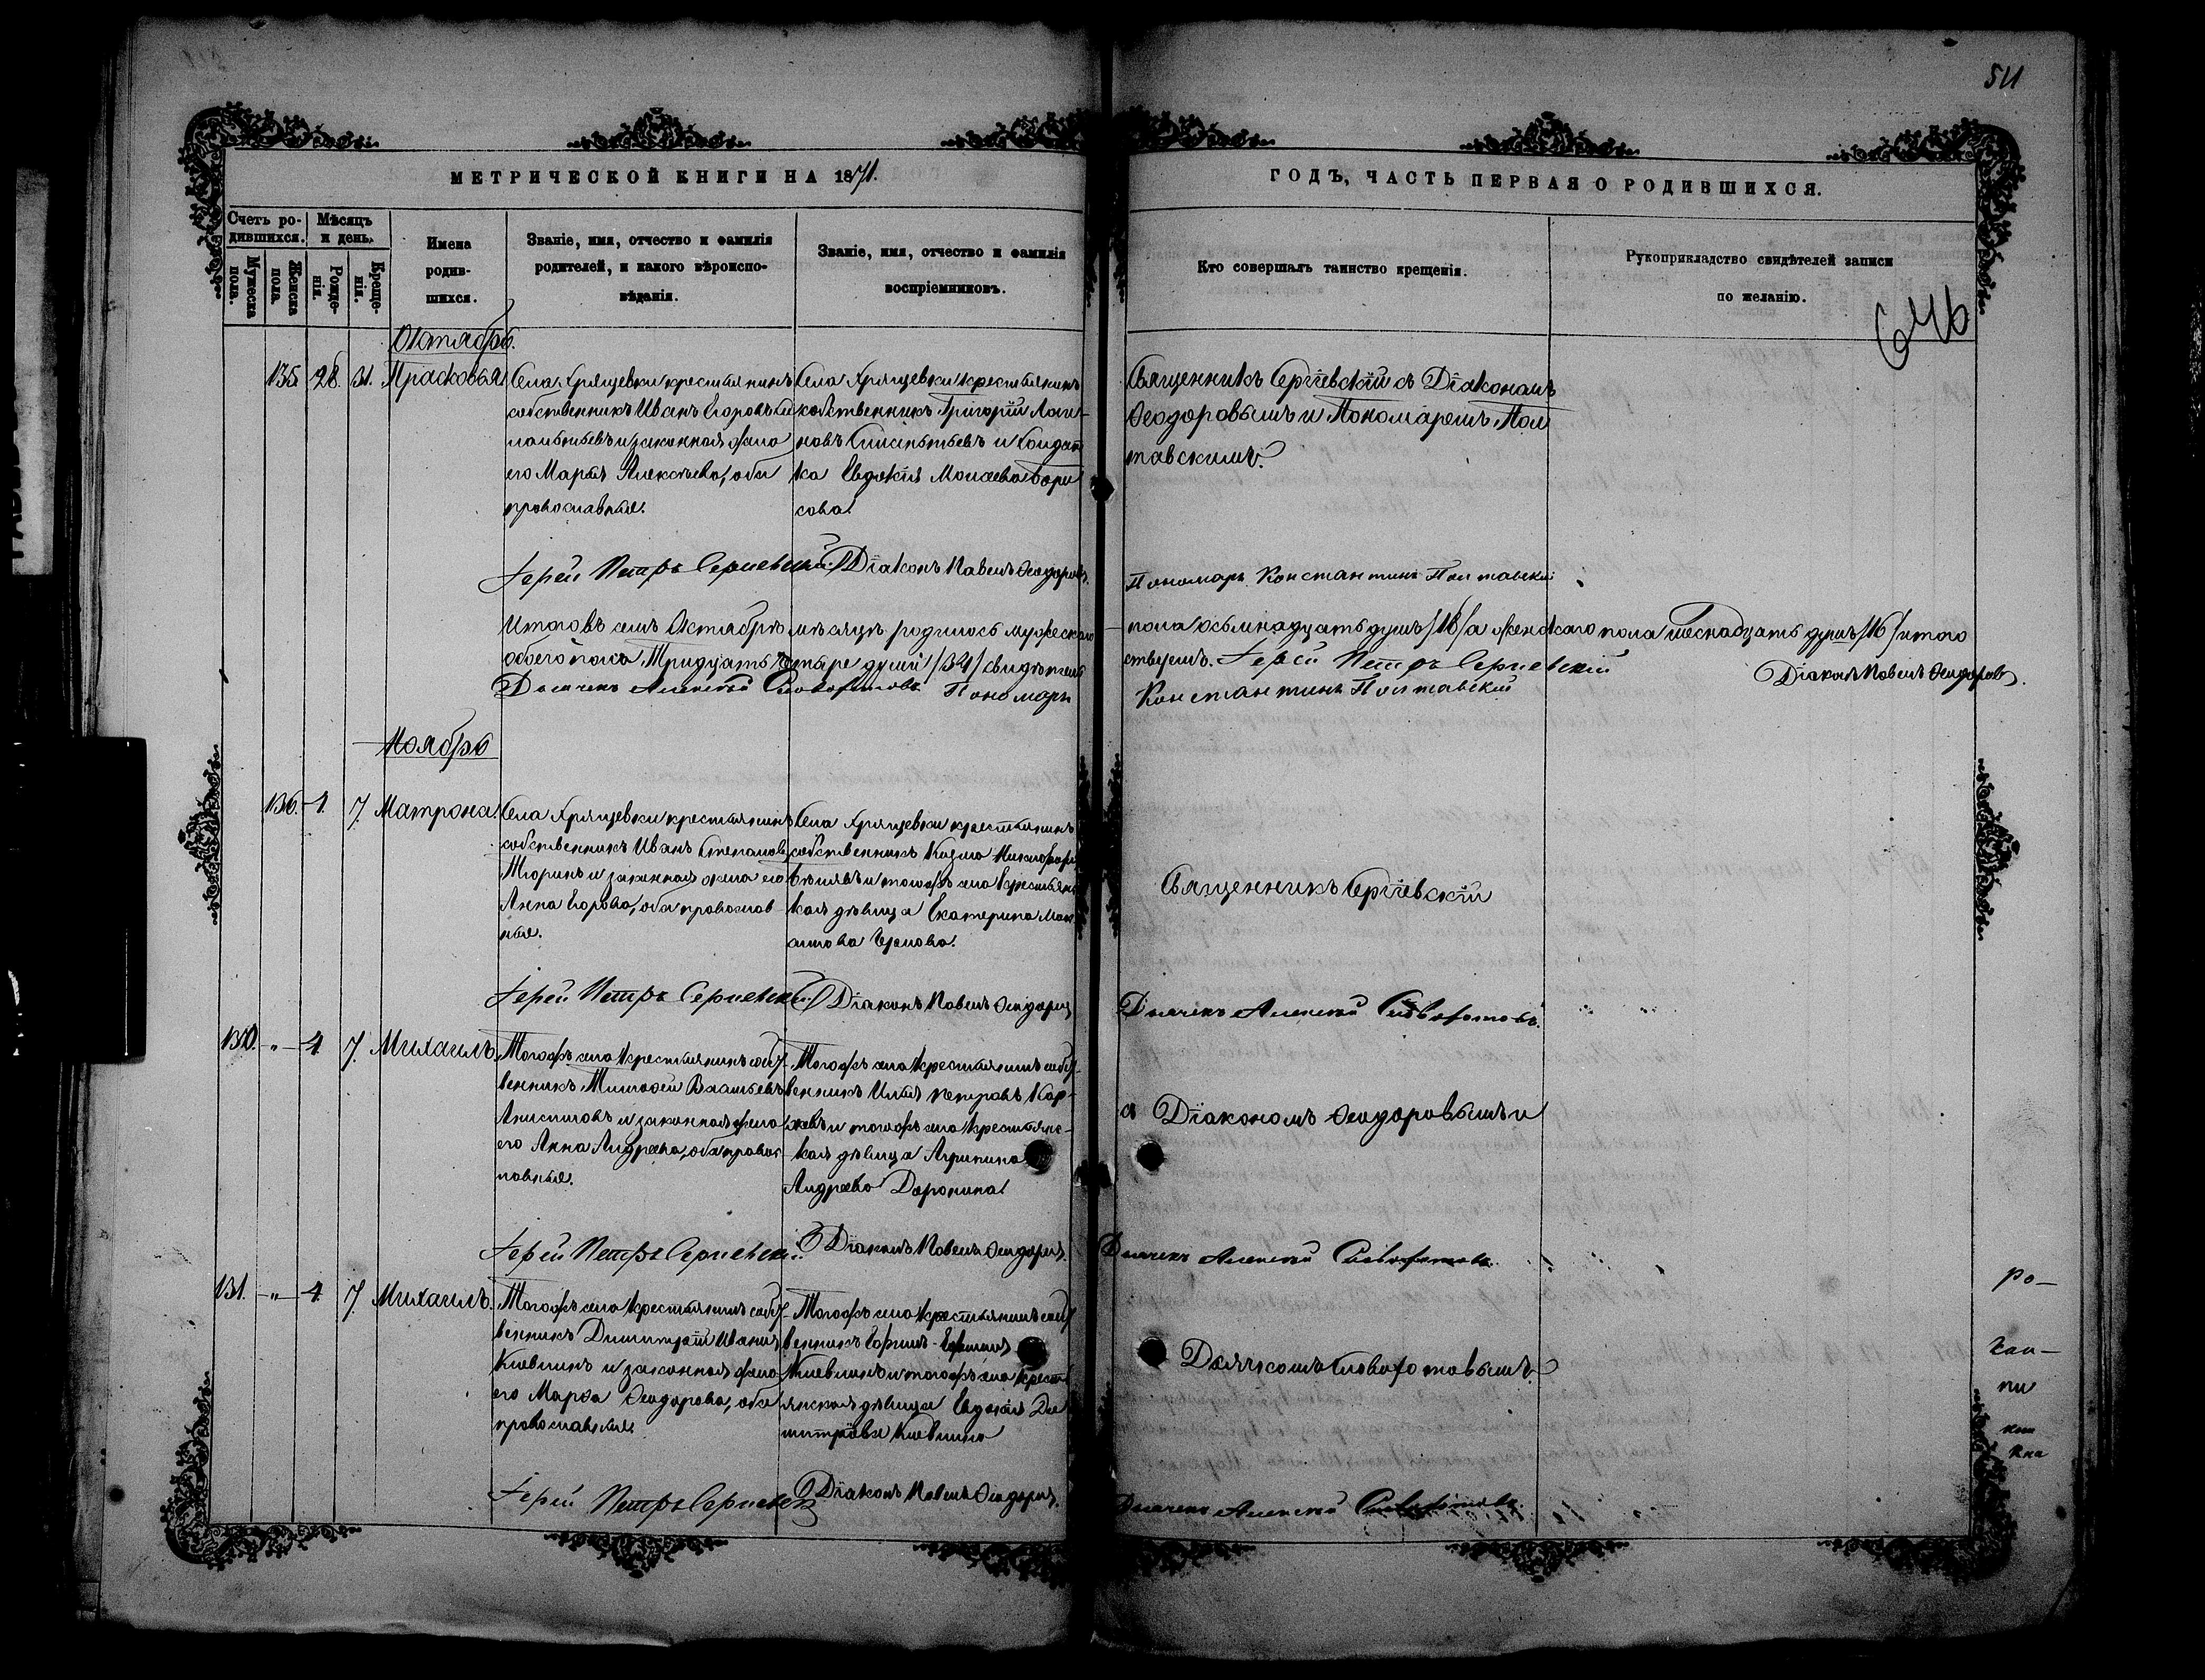 511
МЕТРИЧЕСКОЙ КНИГИ НА 1871.
ГОДЪ, ЧАСТЬ ПЕРВАЯ О РОДИВШИХСЯ.
646
Счетъ ро-
дившихся.
Мужеска пола.
Женска пола.
Мѣсяцъ
и день.
Рожде-
нія.
Креще-
нія.
Имена
родив-
шихся.
Званіе, имя, отчество и фамилія
родителей, и какого вѣроиспо-
вѣданія.
Званіе, имя, отчество и фамилія
воспріемниковъ.
Кто совершалъ таинство крещенія.
Рукоприкладство свидѣтелей записи
по желанію.
Октябрь.
135. 28. 31. Прасковья
Села Хрящевки крестьянинъ
собственникъ Иванъ Егоровъ
и законная жена
его Марья Алексѣева, оба
православные.
Села Хрящевки крестьянинъ
собственникъ Григорій Логи-
новъ и Солдат
ка Евдокія Моисеева Бори
сова.
Священникъ Сергіевскій съ Діаконамъ
Ѳеодоровымъ и Пономаремъ Пол
тавскимъ.
Іерей Петръ Сергіевскій
Діаконъ Павелъ Ѳеодоровъ.
Пономарь Константинъ Полтавскій
Итого въ семъ Октябрѣ мѣсяцѣ родилось мужескаго
пола осьмнадцать душъ /18/ а женскаго пола шеснадцать душъ /16/ итого
обоего пола Тридцать четыре души /34/ свидѣтель
ствуемъ. Іерей Петръ Сергіевскій
Діаконъ Павелъ Ѳеодоровъ.
Дьячекъ Алексѣй Сиворотовъ Пономарь
Константинъ Полтавскій
Ноябрь
136. 4. 7. Матрона.
Села Хрящевки крестьянинъ
собственникъ Иванъ Степановъ
Тюринъ и законная жена его
Анна Егорова, оба православ
ные.
Села Хрящевки крестьянинъ
собственникъ Козма Никифоро
и тогожъ села крестьян
кая дѣвица Екатерина Мак
Священникъ Сергіевскій
Іерей Петръ Сергіевскій
Діаконъ Павелъ Ѳеодоровъ
Дьячекъ Алексѣй Сиворотовъ.
130. -"- 4. 7. Михаилъ.
Тогожъ села крестьянинъ собст-
венникъ Тимоѳей Васильевъ
Анисимовъ и законная жена
его Анна Андреева, оба правос
лавные.
Тогожъ села крестьянинъ собст-
венникъ Илья Петровъ Кор-
жевъ и тогожъ села крестьянс-
кая дѣвица Агрипина
Андреева Доронина
съ Діакономъ Ѳеодоровымъ и
Іерей Петръ Сергіевскій
Діаконъ Павелъ Ѳеодоровъ.
Дьячекъ Алексѣй Сиворотовъ.
131. -"- 4. 7. Михаилъ.
Тогожъ села крестьянинъ собст-
венникъ Димитрій Ивановъ
Кившинъ и законная жена
его Марѳа Ѳеодорова, оба
православные.
Тогожъ села крестьянинъ собст
венникъ Ефимъ Ефимовъ
Кившинъ и тогожъ села крест
янская дѣвица Евдокія Ди
митріева Кившина
Дьячкомъ Сиворотовымъ.
Іерей Петръ Сергіевскій
Діаконъ Павелъ Ѳеодоровъ.
Дьячекъ Алексѣй Сиворотовъ.
ро-
ни
кна